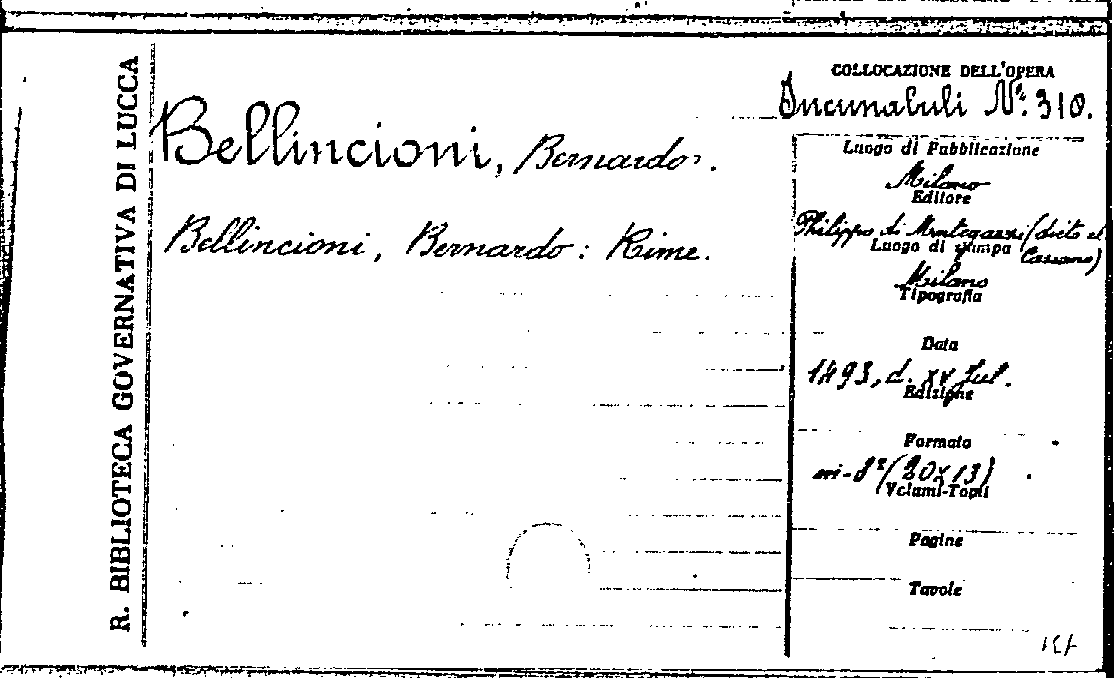 R. BIBLIOTECA GOVERNATIVA DI LUCCA
Bellincioni, Bernardo.
Bellincioni, Bernardo: Rime.
COLLOCAZIONE DELL'OPERA
Incunabuli Nº. 310.
Luogo di Pubblicazione
Milano
Editore
Philippo di Mantegazzi (dicto el
Cassano)
Luogo di stampa
Milano
Tipografia
Data
1493, d. XV Jul.
Edizione
Formato
in-8º (20x13)
Volumi-Tomi
Pagine
Tavole